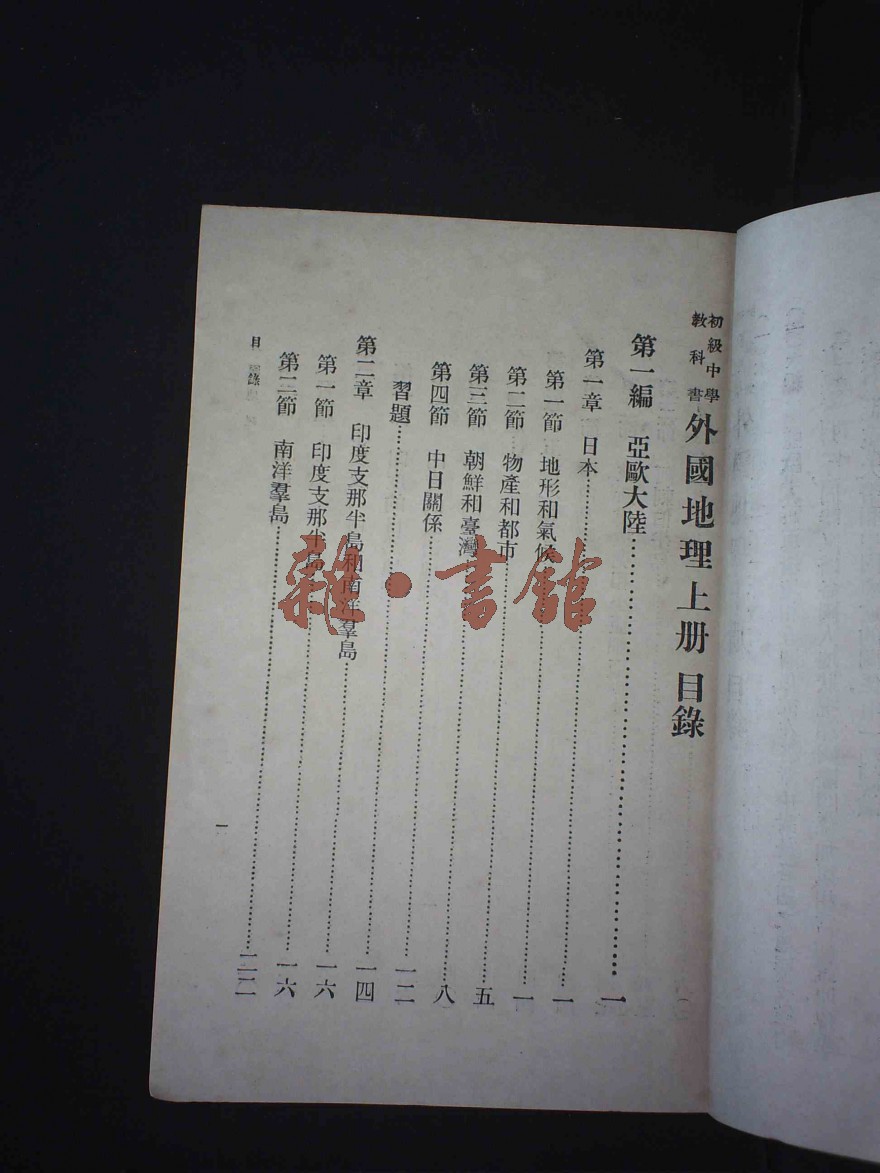 初級中學教科書 外國地理上册 目錄
第一編 亞歐大陸……一
第一章 日本……一
第一節 地形和氣候……一
第二節 物產和都市……五
第三節 朝鮮和臺灣……八
第四節 中日關係……一二
習題……一四
第二章 印度支那半島和南洋羣島……一六
第一節 印度支那半島……一六
第二節 南洋羣島……二二
目錄
一
雜·書館